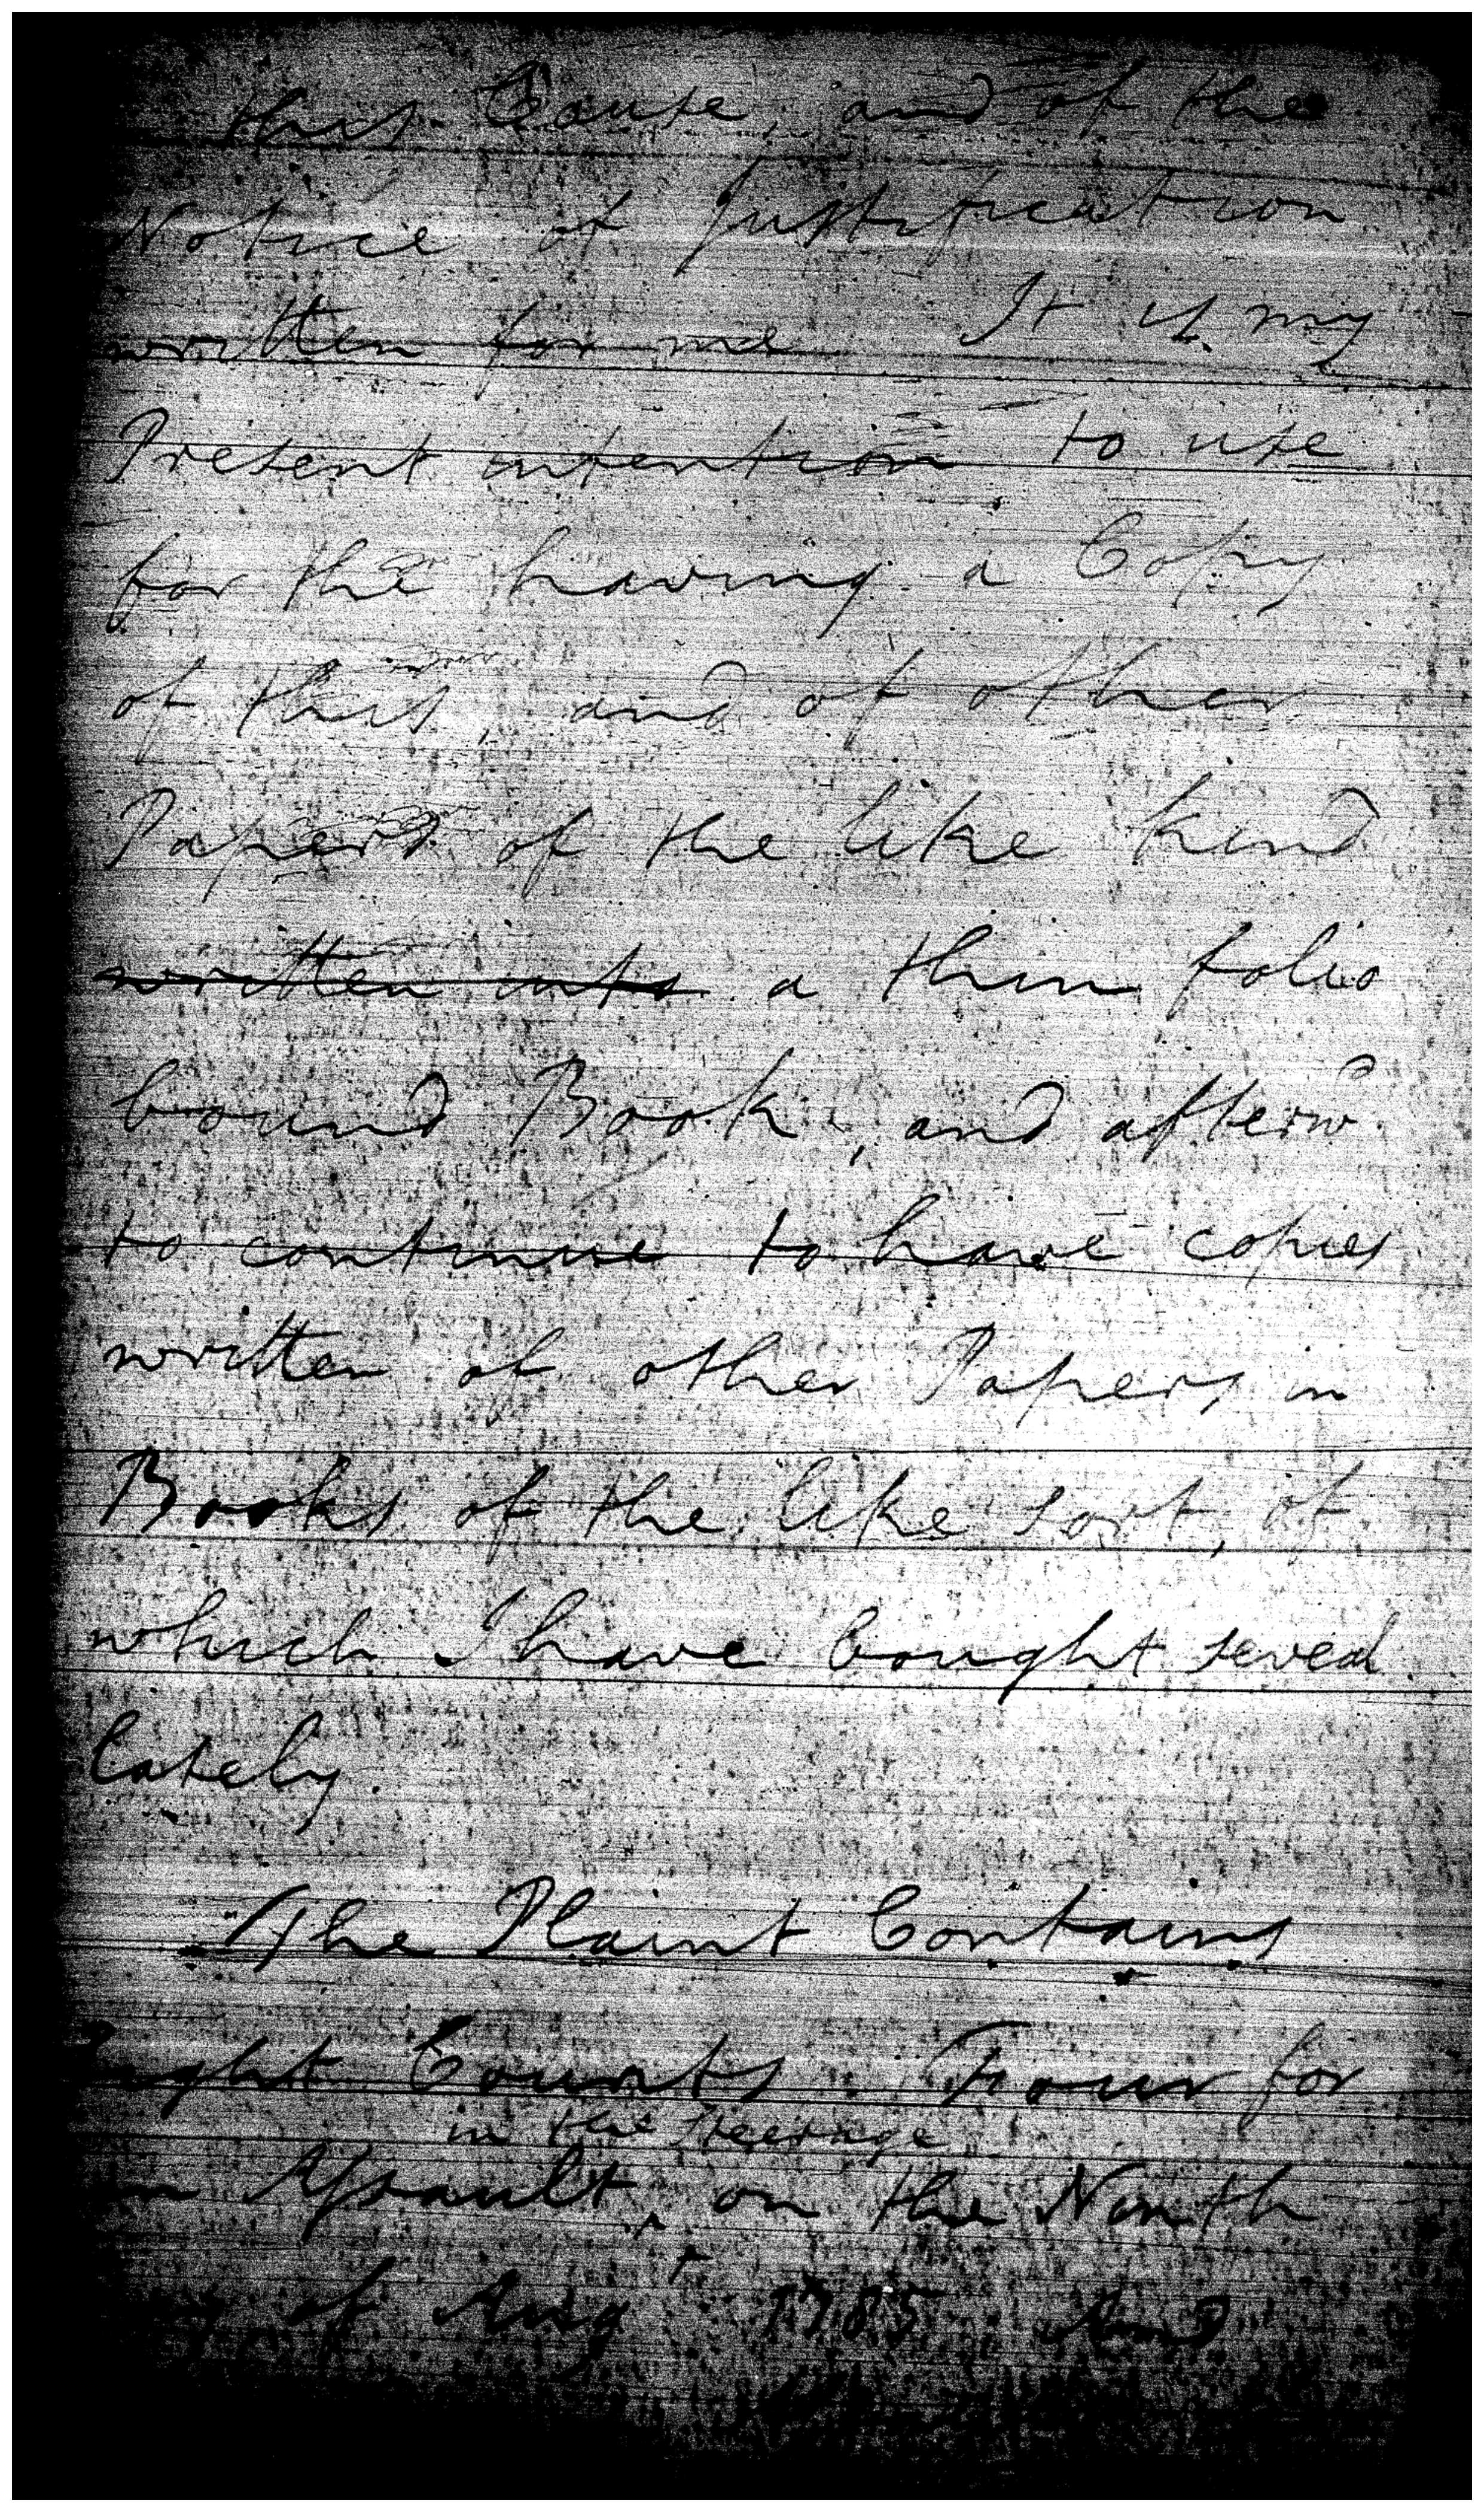 this Cause, and of the
Notice of Justification
written for me It is my
Present intention to use
for the having a Copy
of this, and of other
Papers of the like kind
written into a thin folio
bound Book, and afterwd
to continue to have copies
written of other Papers in
Books of the like sort, of
which I have bought several
lately.
The Plaint Contains
Eight Counts. Four for
in the Steerage
an Assault, on the Ninth
of Augt 1785 And